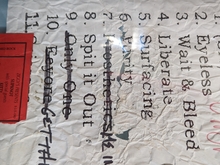 2. Eyeless
3. Wait & Bleed
4. Liberate
5. Surfacing
6. Purity
7
8 Spit it Out
9. Only One
10 Eeyore
11